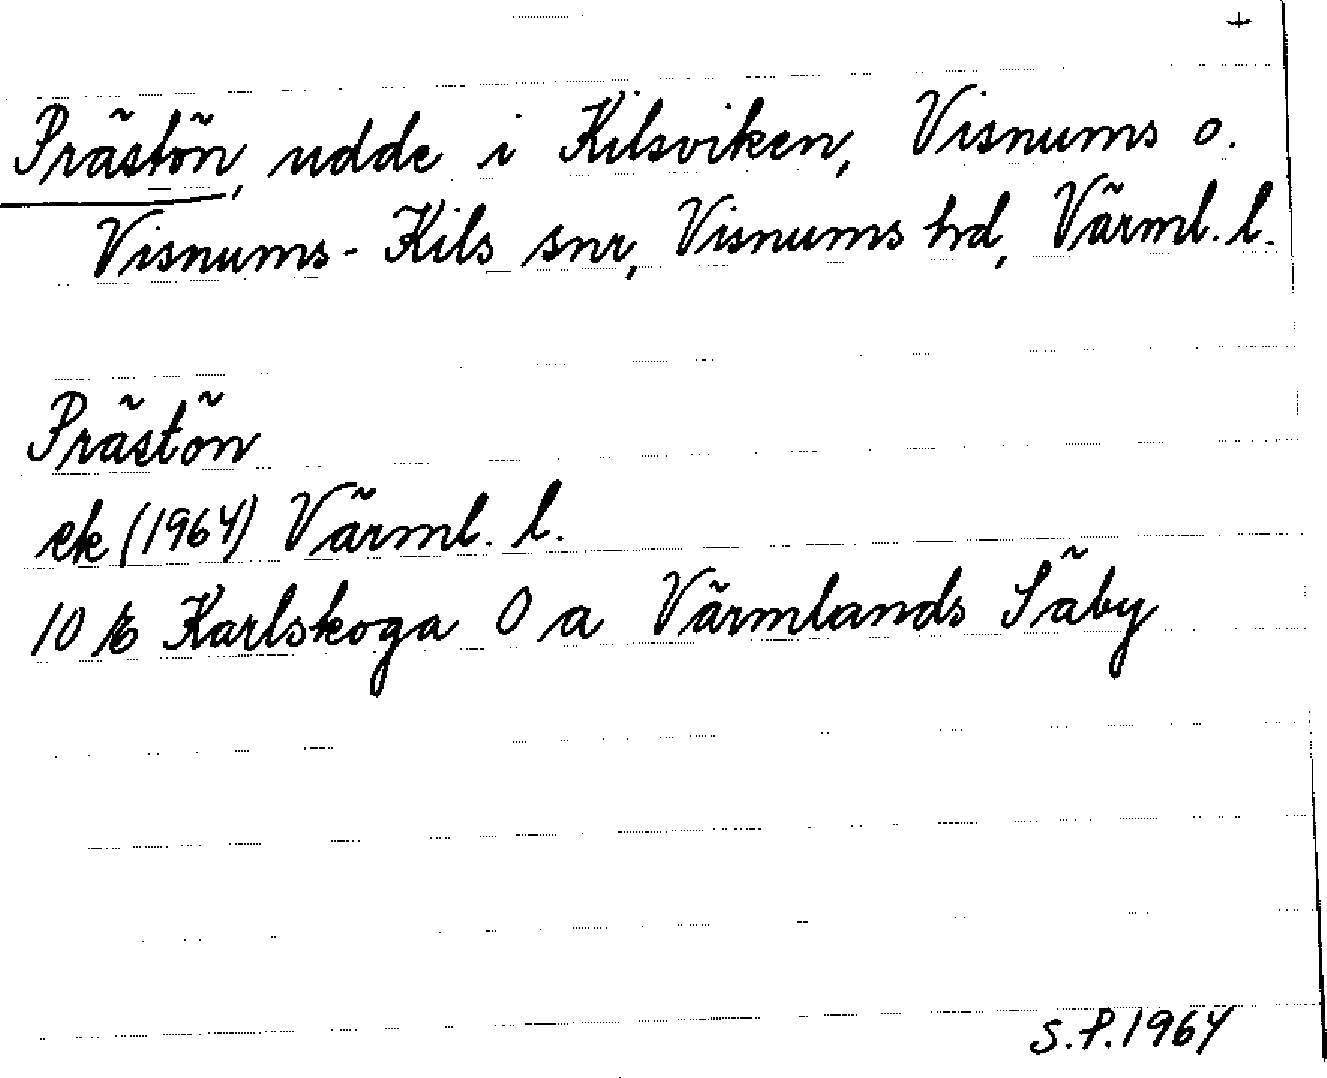 +
Prästön, udde i Kilsviken, Visnums o.
Visnums-Kils snr, Visnums hd, Värml. l.
Prästön
ek (1964) Värml. l.
10 E Karlskoga 0 a Värmlands Säby
S.P.1964